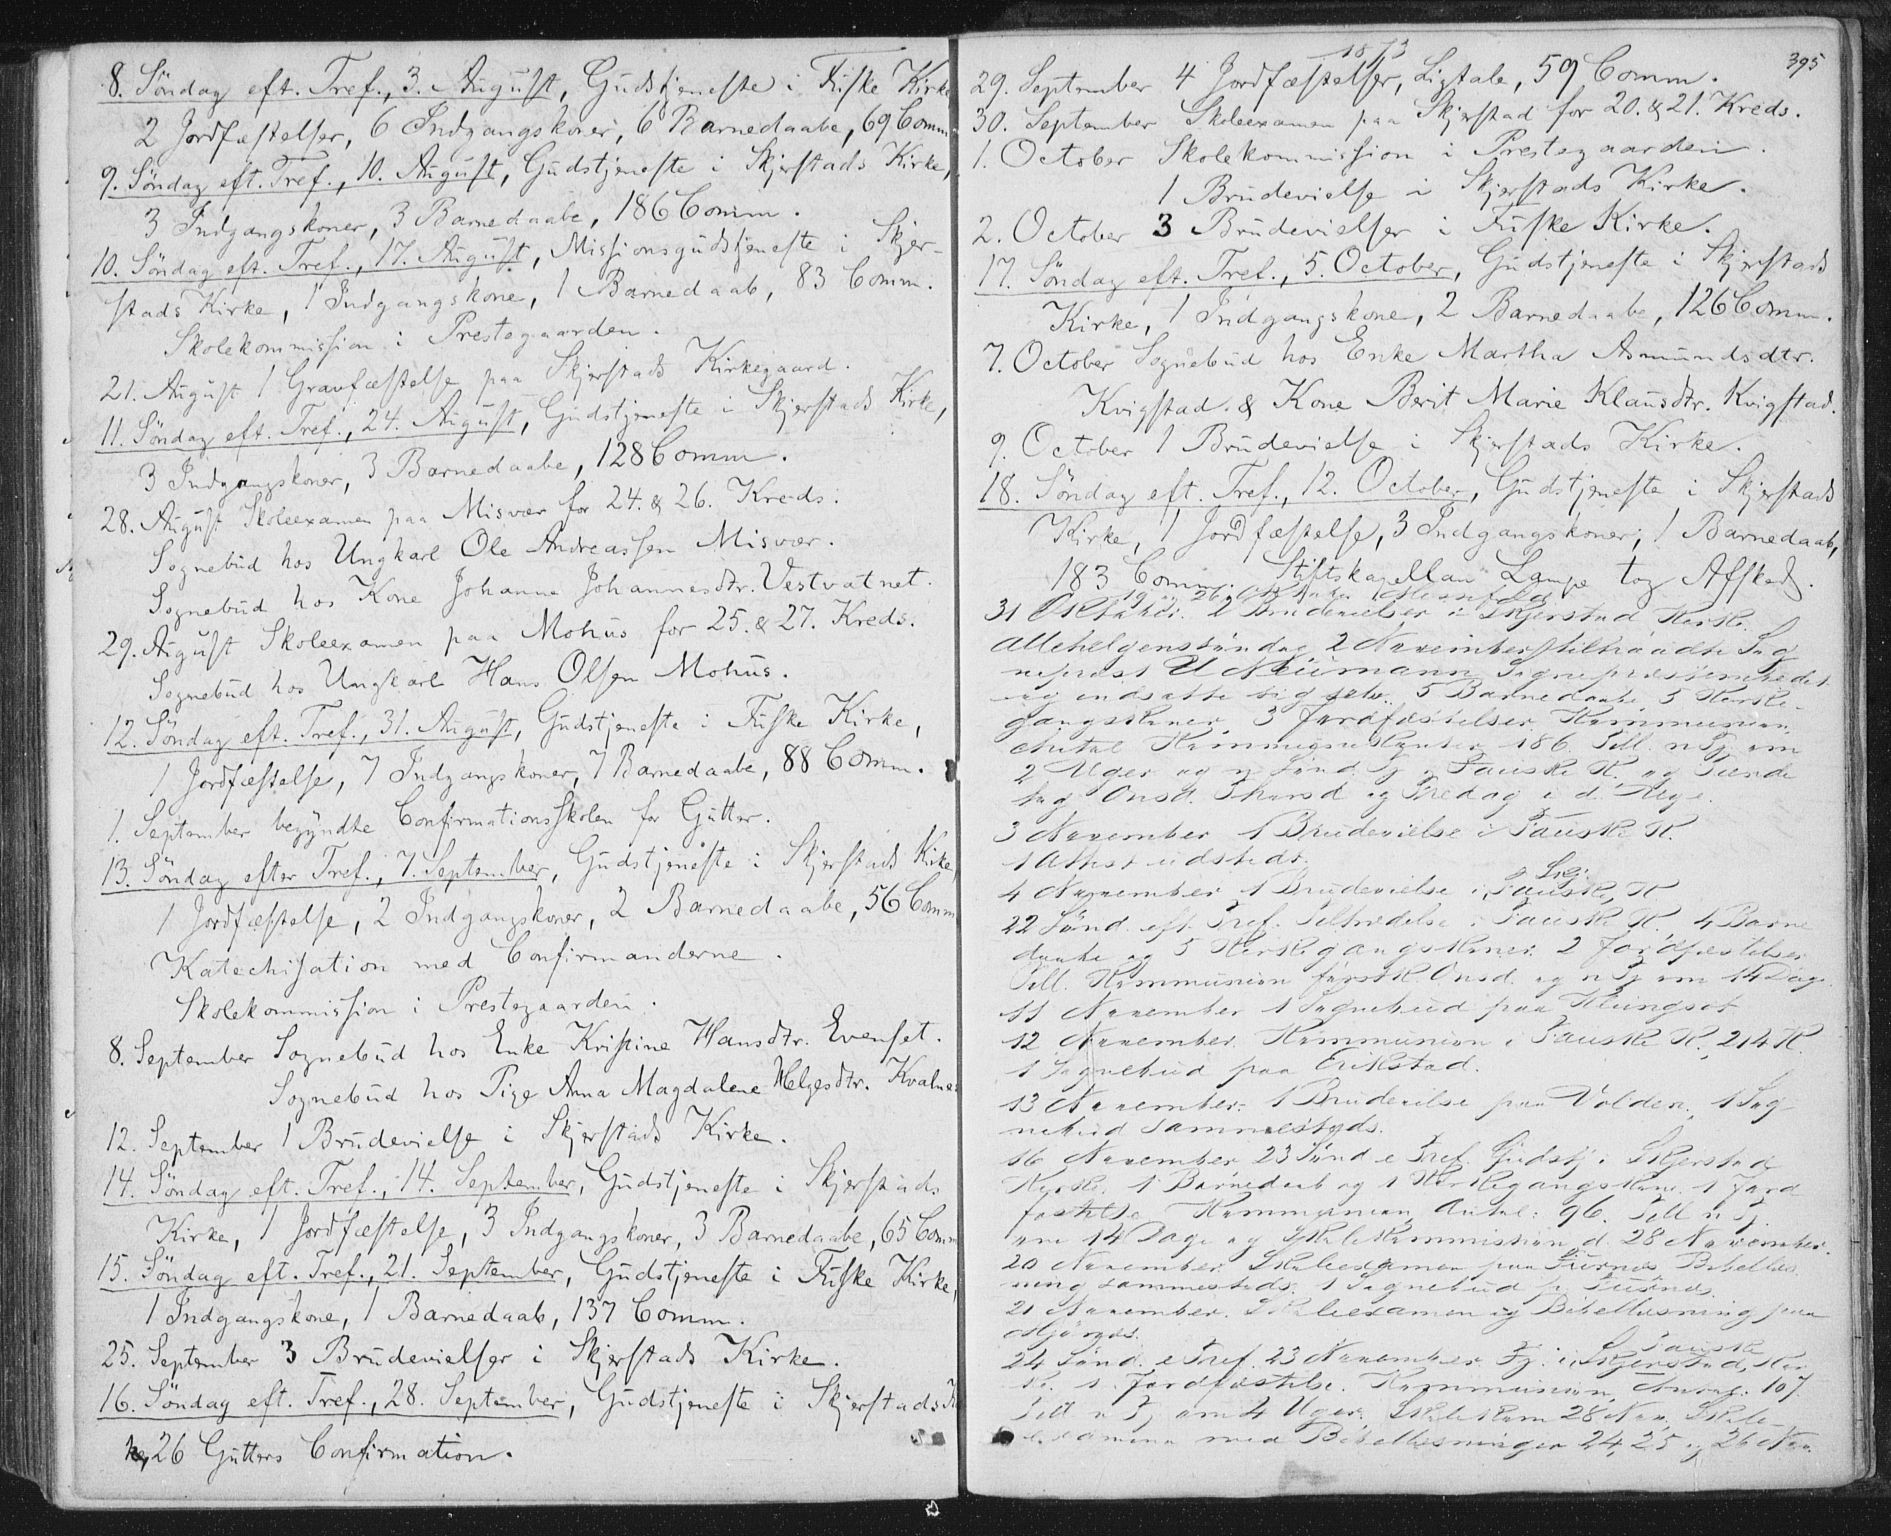 8. Söndag eft. Tref., 3. August, Gudstjeneste i Fuske Kirke
2 Jordfæstelser, 6 Indgangskoner, 6 Barnedaabe, 69 Comm
9. Söndag eft. Tref., 10. August, Gudstjeneste i Skjerstads Kirke,
3 Indgangskoner, 3 Barnedaabe, 186 Comm.
10. Söndag eft. Tref., 17. August, Missionsgudstjeneste i Skjer-
stads Kirke, 1 Indgangskone, 1 Barnedaab, 83 Comm.
Skolekommission i Prestegaarden.
21. August 1 Gravfæstelse paa Skjerstads Kirkegaard.
11. Söndag eft. Tref., 24. August, Gudstjeneste i Skjerstads Kirke,
3 Indgangskoner, 3 Barnedaabe, 128 Comm.
28. August Skoleexamen paa Misvær for 24. & 26. Kreds.
Sognebud hos Ungkarl Ole Andreassen Misvær.
Sognebud hos Kone Johanna Johannesdtr. Vestvatnet.
29. August Skoleexamen paa Mohus for 25. & 27. Kreds.
Sognebud hos Ungkarl Hans Olsen Mohus.
12. Söndag eft. Tref., 31. August, Gudstjeneste i Fuske Kirke,
1 Jordfæstelse, 7 Indgangskoner, 7 Barnedaabe, 88 Comm.
1. September begyndte Confirmationsskolen for Gutter.
13. Söndag efter Tref., 7. September, Gudstjeneste i Skjerstads Kirke,
1 Jordfæstelse, 2 Indgangskoner, 2 Barnedaabe, 56 Comm
Katechisation med Confirmanderne.
Skolekommission i Prestegaarden.
8. September Sognebud hos Enke Kristine Hansdtr. Evenset.
Sognebud hos Pige Anna Magdalene Helgesdtr. Kvalnes
12. September 1 Brudevielse i Skjerstads Kirke.
14. Söndag eft. Tref., 14. September, Gudstjeneste i Skjerstads
Kirke, 1 Jordfæstelse, 3 Indgangskoner, 3 Barnedaabe, 65 Comm
15. Söndag eft. Tref., 21. September, Gudstjeneste i Fuske Kirke,
1 Indgangskone, 1 Barnedaab, 137 Comm.
25. September 3 Brudevielser i Skjerstads Kirke.
16. Söndag eft. Tref., 28. September, Gudstjeneste i Skjerstads K
ke, 26 Gutters Confirmation.
1873
395
29. September 4 Jordfæstelser, Ligtale, 59 Comm.
30. September Skoleexamen paa Skjerstad for 20. & 21. Kreds.
1. October Skolekommission i Prestegaarden.
1 Brudevielse i Skjerstads Kirke.
2. October 3 Brudevielser i Fuske Kirke.
17. Söndag eft. Tref., 5. October, Gudstjeneste i Skjerstads
Kirke, 1 Indgangskone, 2 Barnedaabe, 126 Comm.
7. October Sognebud hos Enke Martha Asmundsdtr.
Kvigstad & Kone Berit Marie Klausdtr. Kvigstad.
9. October 1 Brudevielse i Skjerstads Kirke.
18. Söndag eft. Tref., 12. October, Gudstjeneste i Skjerstads
Kirke, 1 Jordfæstelse, 3 Indgangskoner, 1 Barnedaab,
183 Comm. Stiftskapellan Lampe tog Afsked.
19 og 26 Oktober Messefald
31 Oktober. 2 Brudevielser i Skjerstad Kirke.
Allehelgenssöndag 2 November tiltraadte Sog
neprest U Neumann Sognepræstembedet
og indsatte sig selv. 5 Barnedaabe, 5 Kirke-
gangskoner, 3 Jordfæstelser. Kommunion
Antal Kommunikanter 186. Till. n Tj om
2 Uger og n Sönd. Tj i Fauske K. og Tiende
tag Onsd. Thorsd og Fredag i d. Uge.
3 November 1 Brudevielse i Fauske K.
1 Attest udstedt.
4 November 1 Brudevielse i Fauske K
22 Sönd. eft. Tref. Tiltrædelse i Fauske K. 4 Barne
daabe og 5 Kirkegangskoner. 2 Jordfæstelser
Till. Kommunion förstk. Onsd. og n Tj om 14 Dage.
11 November 1 Sognebud paa Klungset
12 November. Kommunion i Fauske K. 214 K.
1 Sognebud paa Erikstad.
13 November: 1 Brudevielse paa Valden, 1 Sog
nebud sammesteds.
16 November 23 Sönd e Tref Gudstj. i Skjerstad
Kirke. 1 Barnedaab og 1 Kirkegangskone. 1 Jord
fæstelse Kommunion, Antal: 96. Till n Tj.
om 14 Dage og Skolekommission d. 28 November.
20 November Skoleexamen paa Bibellæs
ning sammesteds. 1 Sognebud
21 November. Skoleexamen og Bibellæsning paa
24 Sönd. e Tref. 23 November Tj. i Fauske Kir
k. 1 Jordfæstelse. Kommunion, Antal: 107.
Till n Tj om 4 Uger. Skolekom 28 Nov. Skole-
examina med Bibellæsninger 24, 25 og 26 Nov.